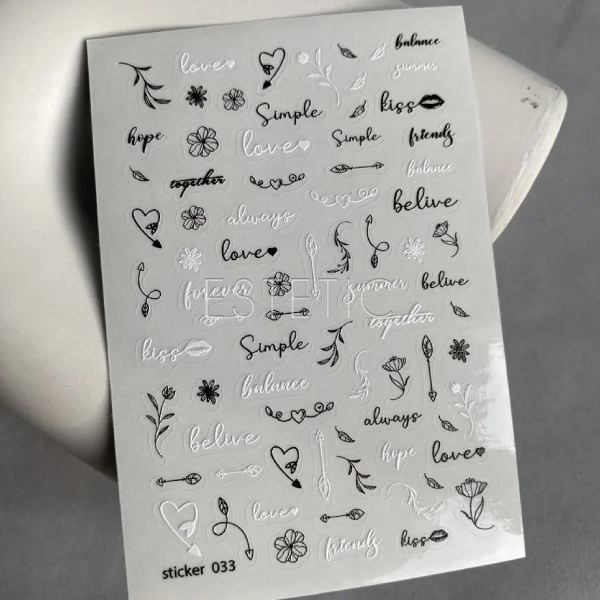 balance
love
summer
Simple
kiss
hope
love
Simple
friends
together
balance
always
belive
love
forever
summer
belive
ESTETIC
together
kiss
Simple
balance
always
belive
hope
love
love
friends
kiss
sticker 033